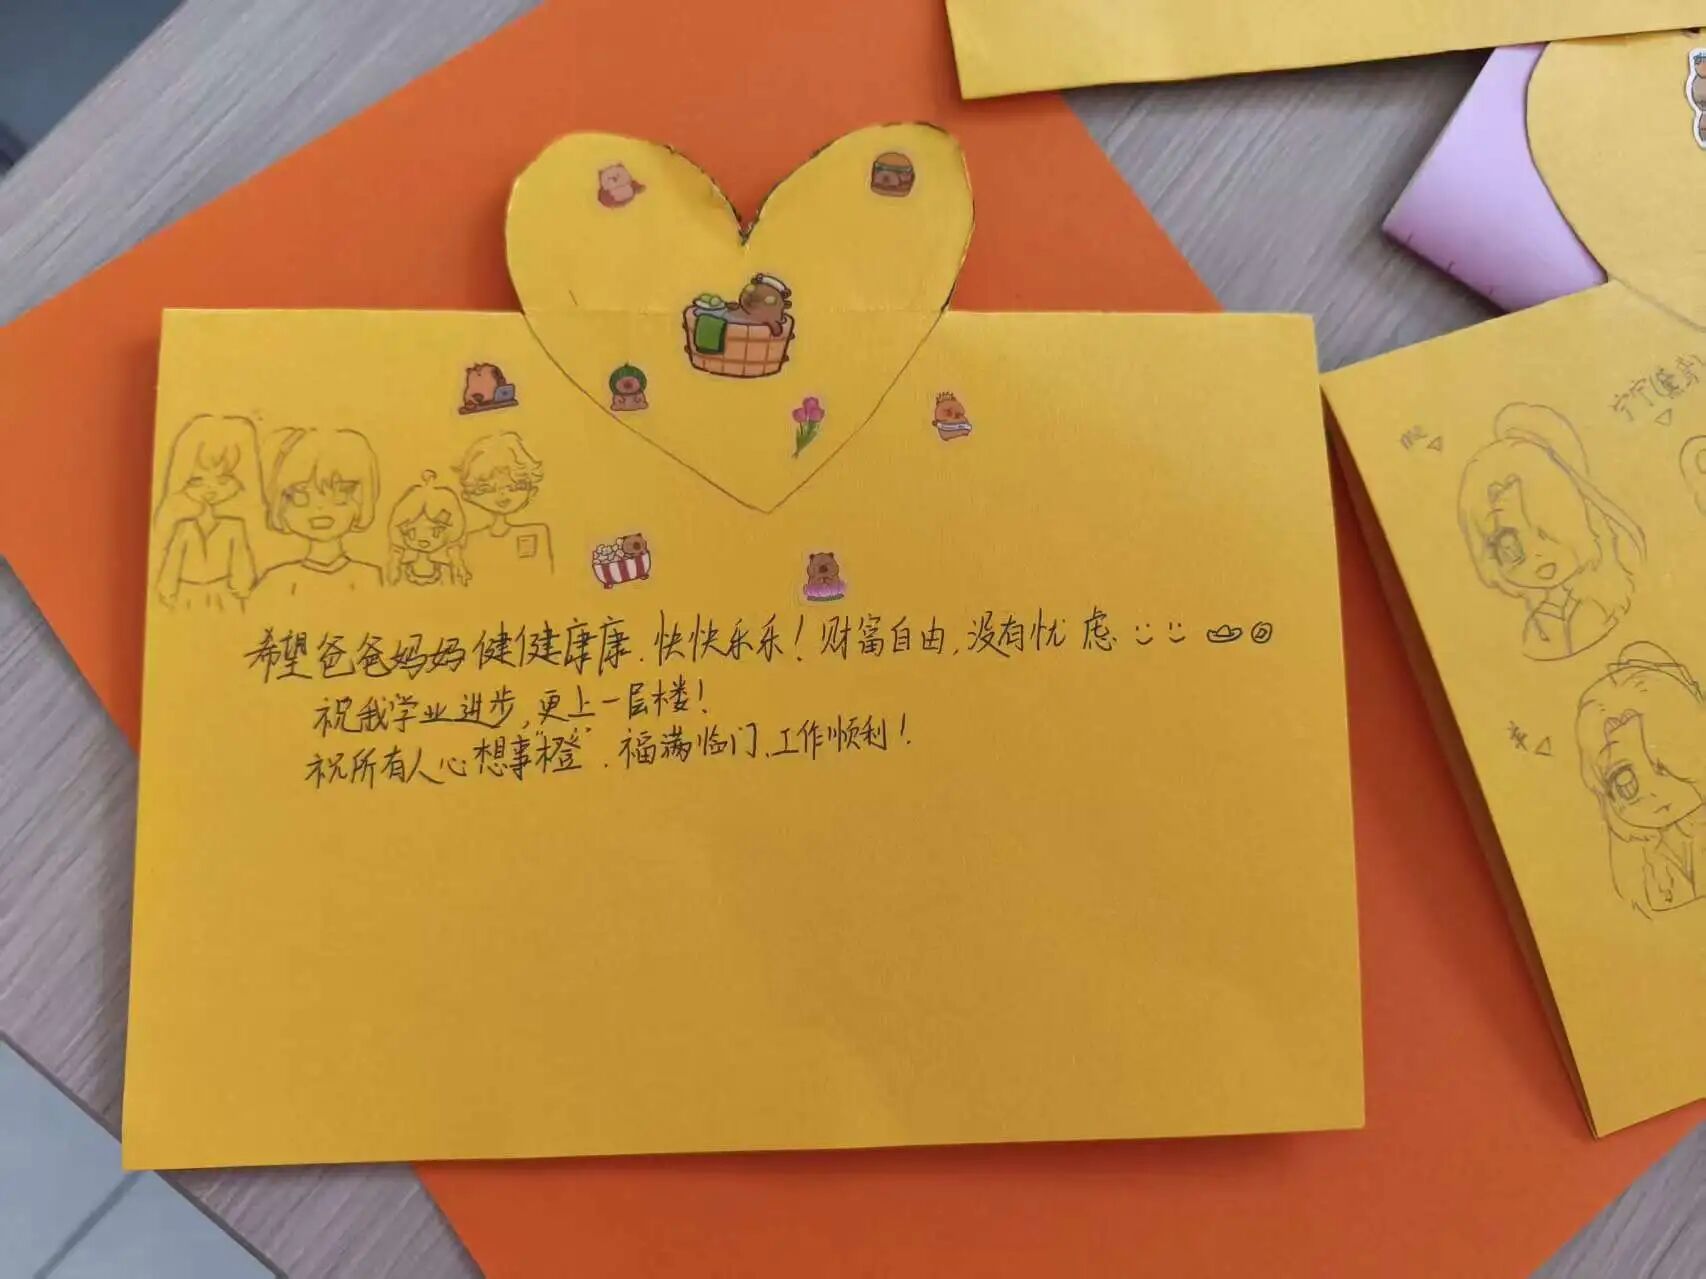 希望爸爸妈妈健健康康、快快乐乐！财富自由，没有忧虑
祝我学业进步，更上一层楼！
祝所有人心想事“橙”、福满临门、工作顺利！
me
宁宁